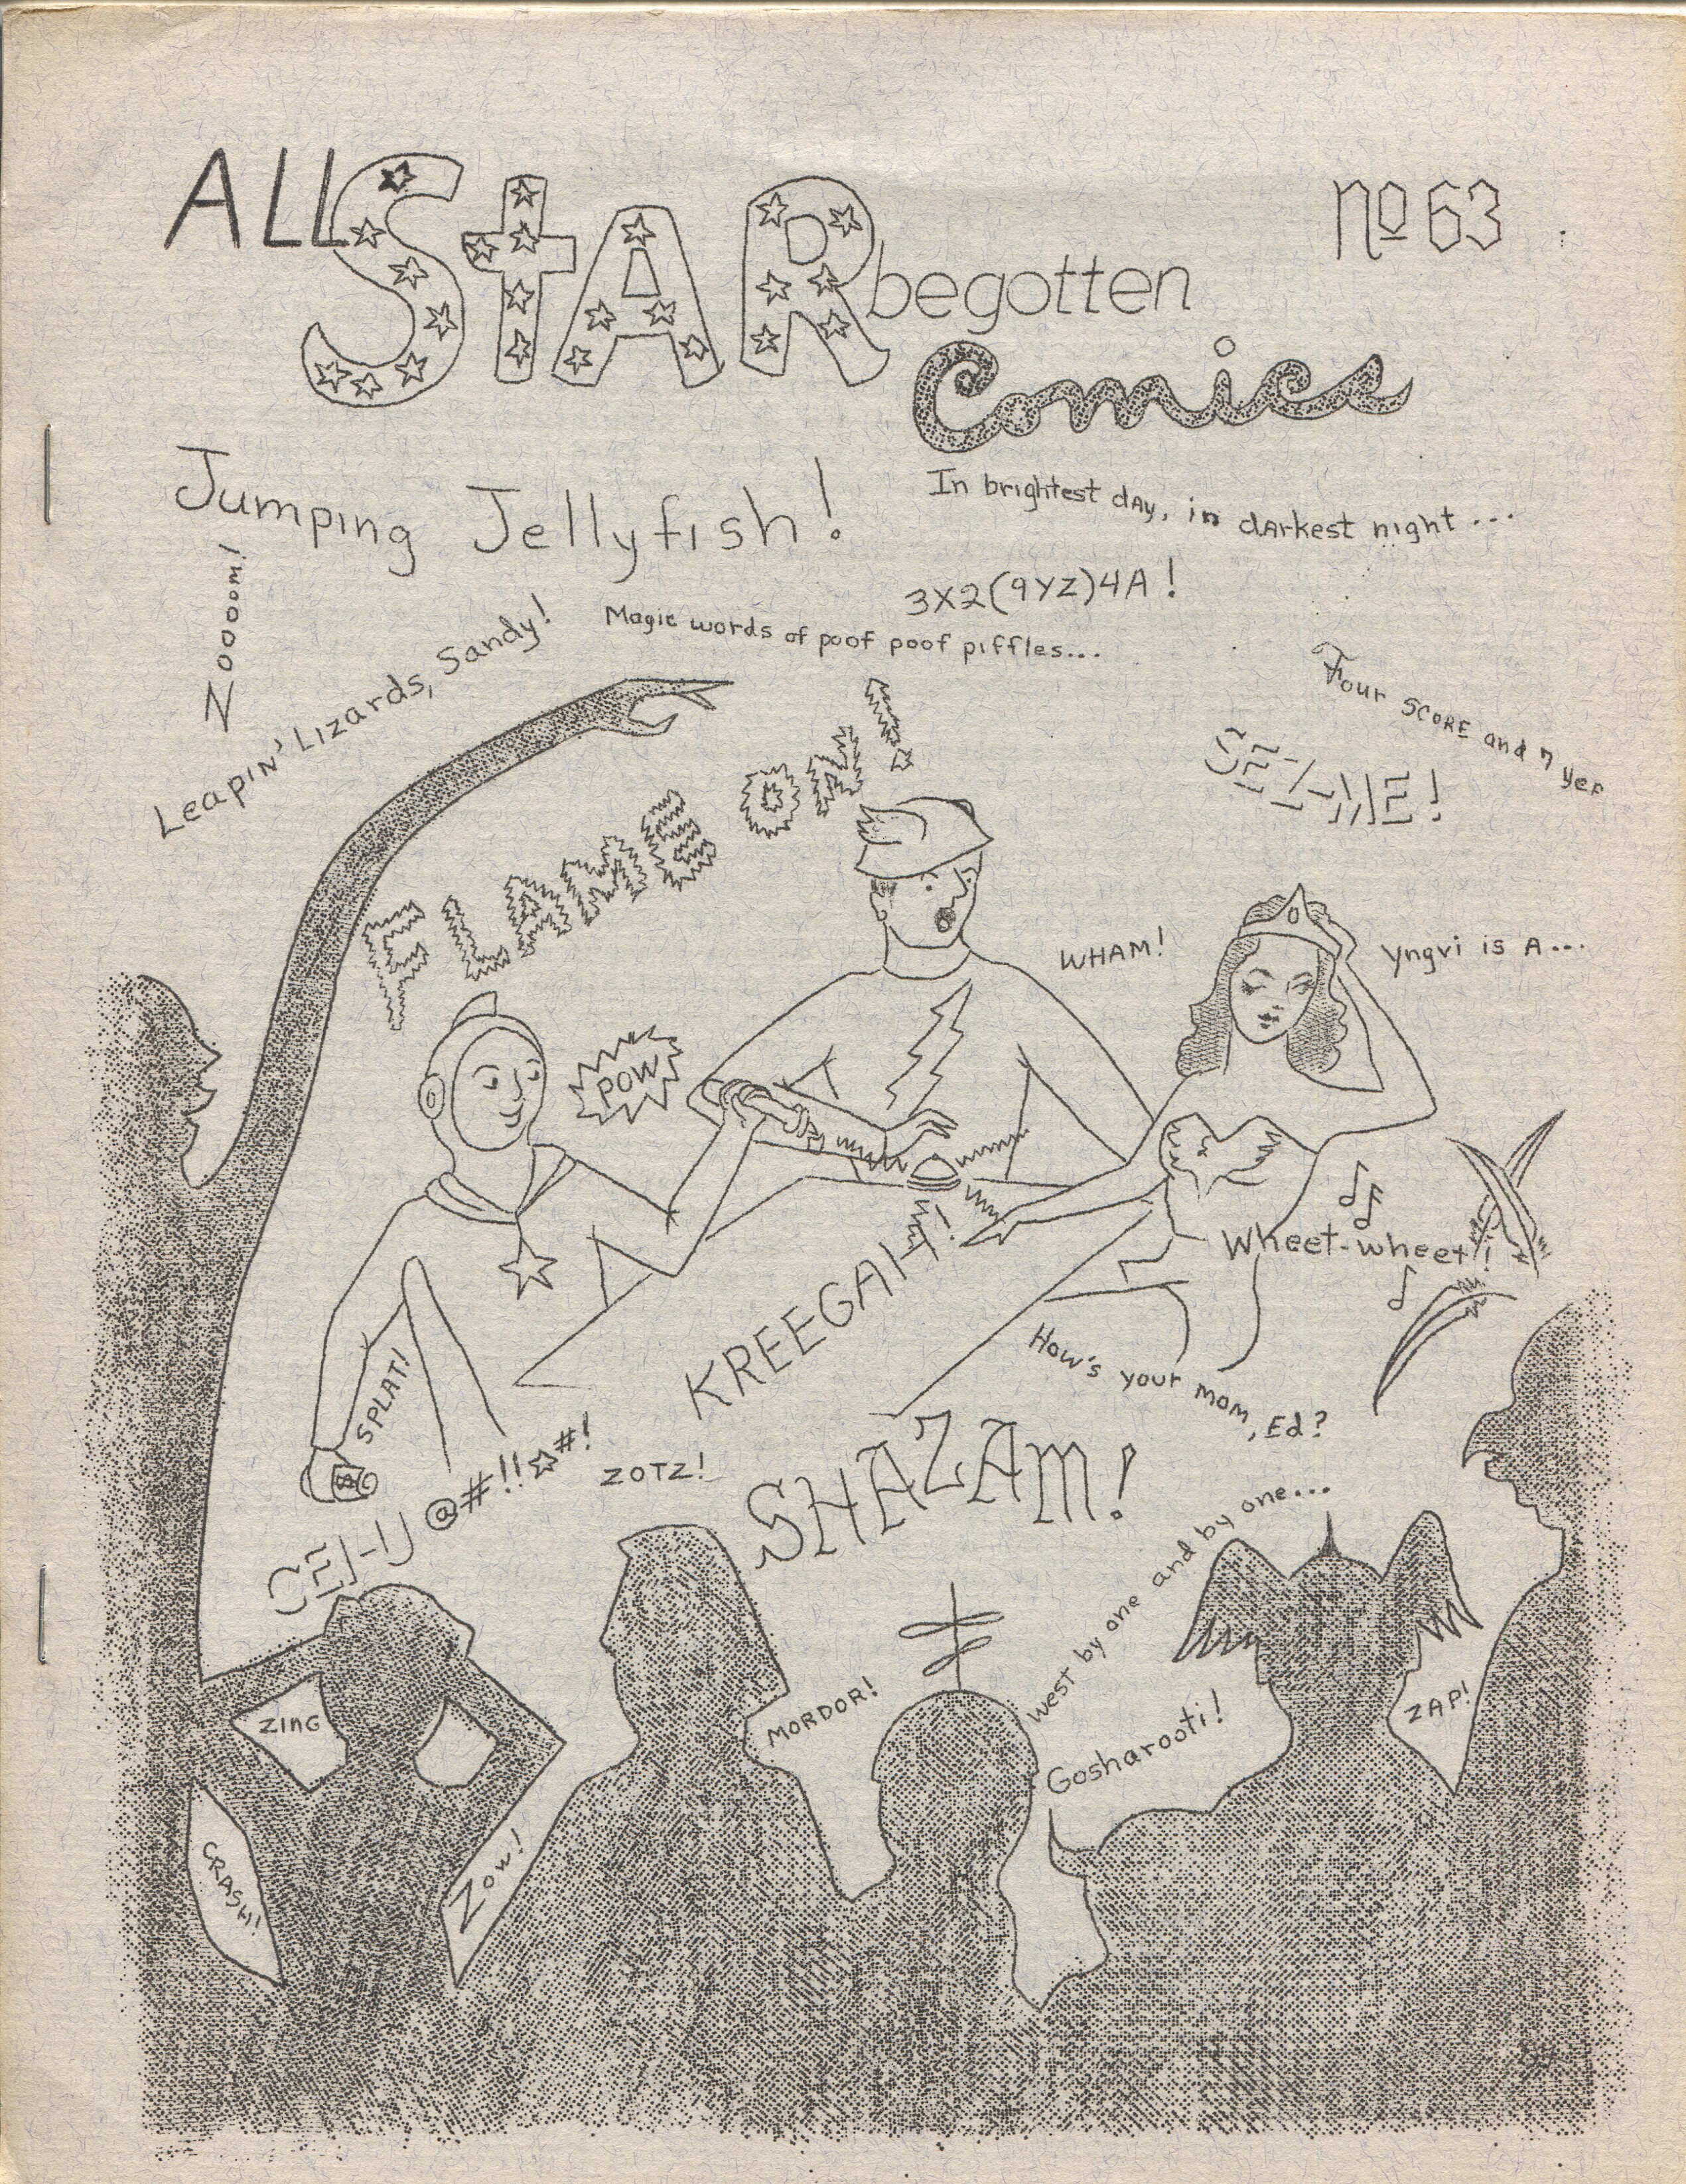 ALL STAR
begotten
Comics
No 63
Jumping Jellyfish!
In brightest day, in darkest night...
3X2(9YZ)4A!
Magic words of poof poof piffles...
Nooooom!
Leapin' Lizards, Sandy!
Four SCORE and 7 yer
SEZ-ME!
FLAME ON!
WHAM!
Yngvi is A...
POW
Wheet-wheet!
KREEGAH!
How's your mom, Ed?
SPLAT!
CEI-U @#!!☆#!
ZOTZ!
SHAZAM!
west by one and by one...
ZING
MORDOR!
Gosharooti!
ZAP!
CRASH!
Zow!